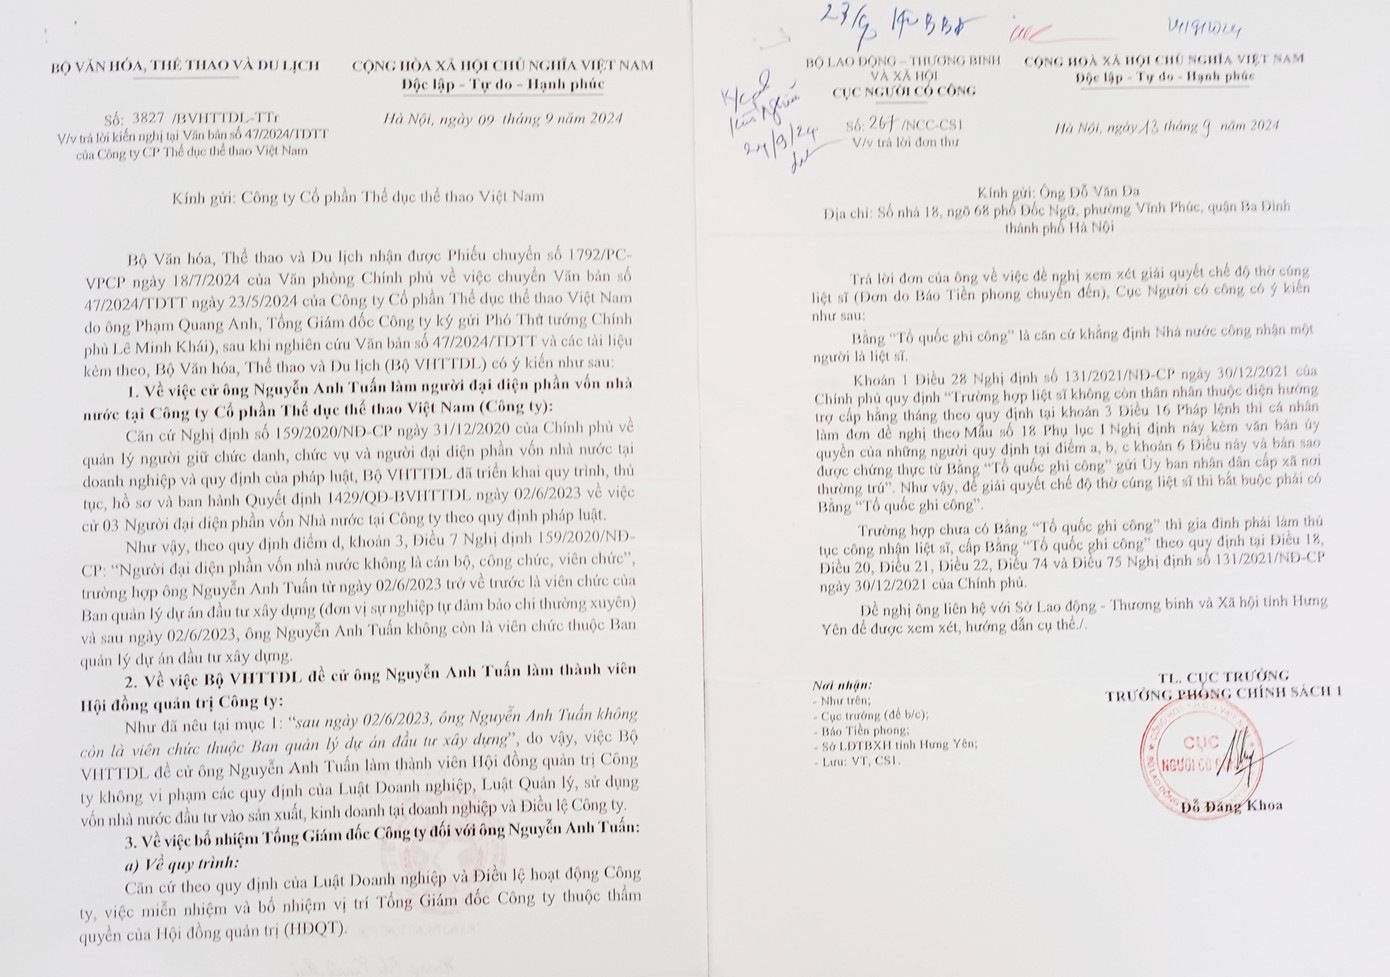 BỘ VĂN HÓA, THỂ THAO VÀ DU LỊCH
CỘNG HÒA XÃ HỘI CHỦ NGHĨA VIỆT NAM
Độc lập - Tự do - Hạnh phúc
Số: 3827 /BVHTTDL-TTr
V/v trả lời kiến nghị tại Văn bản số 47/2024/TDTT
của Công ty CP Thể dục thể thao Việt Nam
Hà Nội, ngày 09 tháng 9 năm 2024
Kính gửi: Công ty Cổ phần Thể dục thể thao Việt Nam
Bộ Văn hóa, Thể thao và Du lịch nhận được Phiếu chuyển số 1792/PC-
VPCP ngày 18/7/2024 của Văn phòng Chính phủ về việc chuyển Văn bản số
47/2024/TDTT ngày 23/5/2024 của Công ty Cổ phần Thể dục thể thao Việt Nam
do ông Phạm Quang Anh, Tổng Giám đốc Công ty ký gửi Phó Thủ tướng Chính
phủ Lê Minh Khái), sau khi nghiên cứu Văn bản số 47/2024/TDTT và các tài liệu
kèm theo, Bộ Văn hóa, Thể thao và Du lịch (Bộ VHTTDL) có ý kiến như sau:
1. Về việc cử ông Nguyễn Anh Tuấn làm người đại diện phần vốn nhà
nước tại Công ty Cổ phần Thể dục thể thao Việt Nam (Công ty):
Căn cứ Nghị định số 159/2020/NĐ-CP ngày 31/12/2020 của Chính phủ về
quản lý người giữ chức danh, chức vụ và người đại diện phần vốn nhà nước tại
doanh nghiệp và quy định của pháp luật, Bộ VHTTDL đã triển khai quy trình, thủ
tục, hồ sơ và ban hành Quyết định 1429/QĐ-BVHTTDL ngày 02/6/2023 về việc
cử 03 Người đại diện phần vốn Nhà nước tại Công ty theo quy định pháp luật.
Như vậy, theo quy định điểm d, khoản 3, Điều 7 Nghị định 159/2020/NĐ-
CP: "Người đại diện phần vốn nhà nước không là cán bộ, công chức, viên chức",
trường hợp ông Nguyễn Anh Tuấn từ ngày 02/6/2023 trở về trước là viên chức của
Ban quản lý dự án đầu tư xây dựng (đơn vị sự nghiệp tự đảm bảo chi thường xuyên)
và sau ngày 02/6/2023, ông Nguyễn Anh Tuấn không còn là viên chức thuộc Ban
quản lý dự án đầu tư xây dựng.
2. Về việc Bộ VHTTDL đề cử ông Nguyễn Anh Tuấn làm thành viên
Hội đồng quản trị Công ty:
Như đã nêu tại mục 1: "sau ngày 02/6/2023, ông Nguyễn Anh Tuấn không
còn là viên chức thuộc Ban quản lý dự án đầu tư xây dựng", do vậy, việc Bộ
VHTTDL đề cử ông Nguyễn Anh Tuấn làm thành viên Hội đồng quản trị Công
ty không vi phạm các quy định của Luật Doanh nghiệp, Luật Quản lý, sử dụng
vốn nhà nước đầu tư vào sản xuất, kinh doanh tại doanh nghiệp và Điều lệ Công ty.
3. Về việc bổ nhiệm Tổng Giám đốc Công ty đối với ông Nguyễn Anh Tuấn:
a) Về quy trình:
Căn cứ theo quy định của Luật Doanh nghiệp và Điều lệ hoạt động Công
ty, việc miễn nhiệm và bổ nhiệm vị trí Tổng Giám đốc Công ty thuộc thẩm
quyền của Hội đồng quản trị (HĐQT).
23/9
24/9/24
BỘ LAO ĐỘNG - THƯƠNG BINH
VÀ XÃ HỘI
CỤC NGƯỜI CÓ CÔNG
CỘNG HOÀ XÃ HỘI CHỦ NGHĨA VIỆT NAM
Độc lập - Tự do - Hạnh phúc
Số: 267/NCC-CS1
V/v trả lời đơn thư
Hà Nội, ngày 13 tháng 9 năm 2024
Kính gửi: Ông Đỗ Văn Da
Địa chỉ: Số nhà 18, ngõ 68 phố Đốc Ngữ, phường Vĩnh Phúc, quận Ba Đình
thành phố Hà Nội
Trả lời đơn của ông về việc đề nghị xem xét giải quyết chế độ thờ cúng
liệt sĩ (Đơn do Báo Tiền phong chuyển đến), Cục Người có công có ý kiến
như sau:
Bằng "Tổ quốc ghi công" là căn cứ khẳng định Nhà nước công nhận một
người là liệt sĩ.
Khoản 1 Điều 28 Nghị định số 131/2021/NĐ-CP ngày 30/12/2021 của
Chính phủ quy định "Trường hợp liệt sĩ không còn thân nhân thuộc diện hưởng
trợ cấp hằng tháng theo quy định tại khoản 3 Điều 16 Pháp lệnh thì cá nhân
làm đơn đề nghị theo Mẫu số 18 Phụ lục I Nghị định này kèm văn bản ủy
quyền của những người quy định tại điểm a, b, c khoản 6 Điều này và bản sao
được chứng thực từ Bằng "Tổ quốc ghi công" gửi Ủy ban nhân dân cấp xã nơi
thường trú". Như vậy, để giải quyết chế độ thờ cúng liệt sĩ thì bắt buộc phải có
Bằng "Tổ quốc ghi công".
Trường hợp chưa có Bằng "Tổ quốc ghi công" thì gia đình phải làm thủ
tục công nhận liệt sĩ, cấp Bằng "Tổ quốc ghi công" theo quy định tại Điều 18,
Điều 20, Điều 21, Điều 22, Điều 74 và Điều 75 Nghị định số 131/2021/NĐ-CP
ngày 30/12/2021 của Chính phủ.
Đề nghị ông liên hệ với Sở Lao động - Thương binh và Xã hội tỉnh Hưng
Yên để được xem xét, hướng dẫn cụ thể./.
Nơi nhận:
- Như trên;
- Cục trưởng (để b/c);
- Báo Tiền phong;
- Sở LĐTBXH tỉnh Hưng Yên;
- Lưu: VT, CS1.
TL. CỤC TRƯỞNG
TRƯỞNG PHÒNG CHÍNH SÁCH 1
CỤC
NGƯỜI CÓ
Đỗ Đăng Khoa